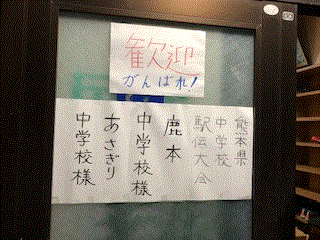 歓迎
がんばれ!
熊本県
中学校
駅伝大会
鹿本
中学校様
あさぎり
中学校様